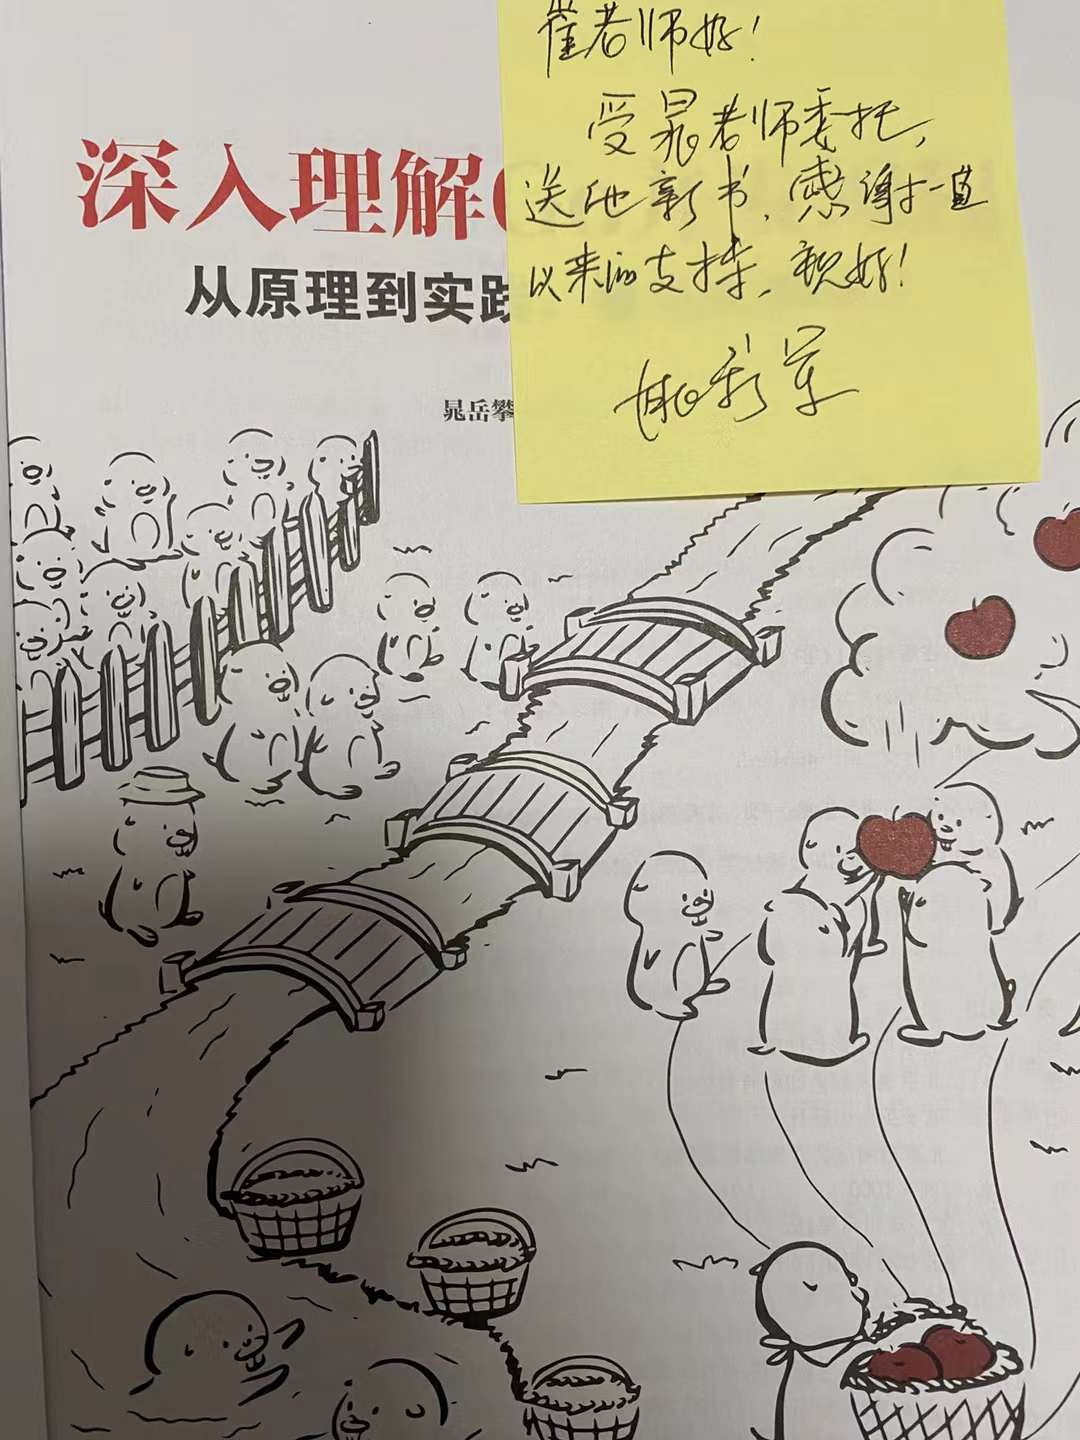 崔老师好！
受晁老师委托，
送他新书，感谢一直
以来的支持，祝好！
深入理解
从原理到实践
晁岳攀